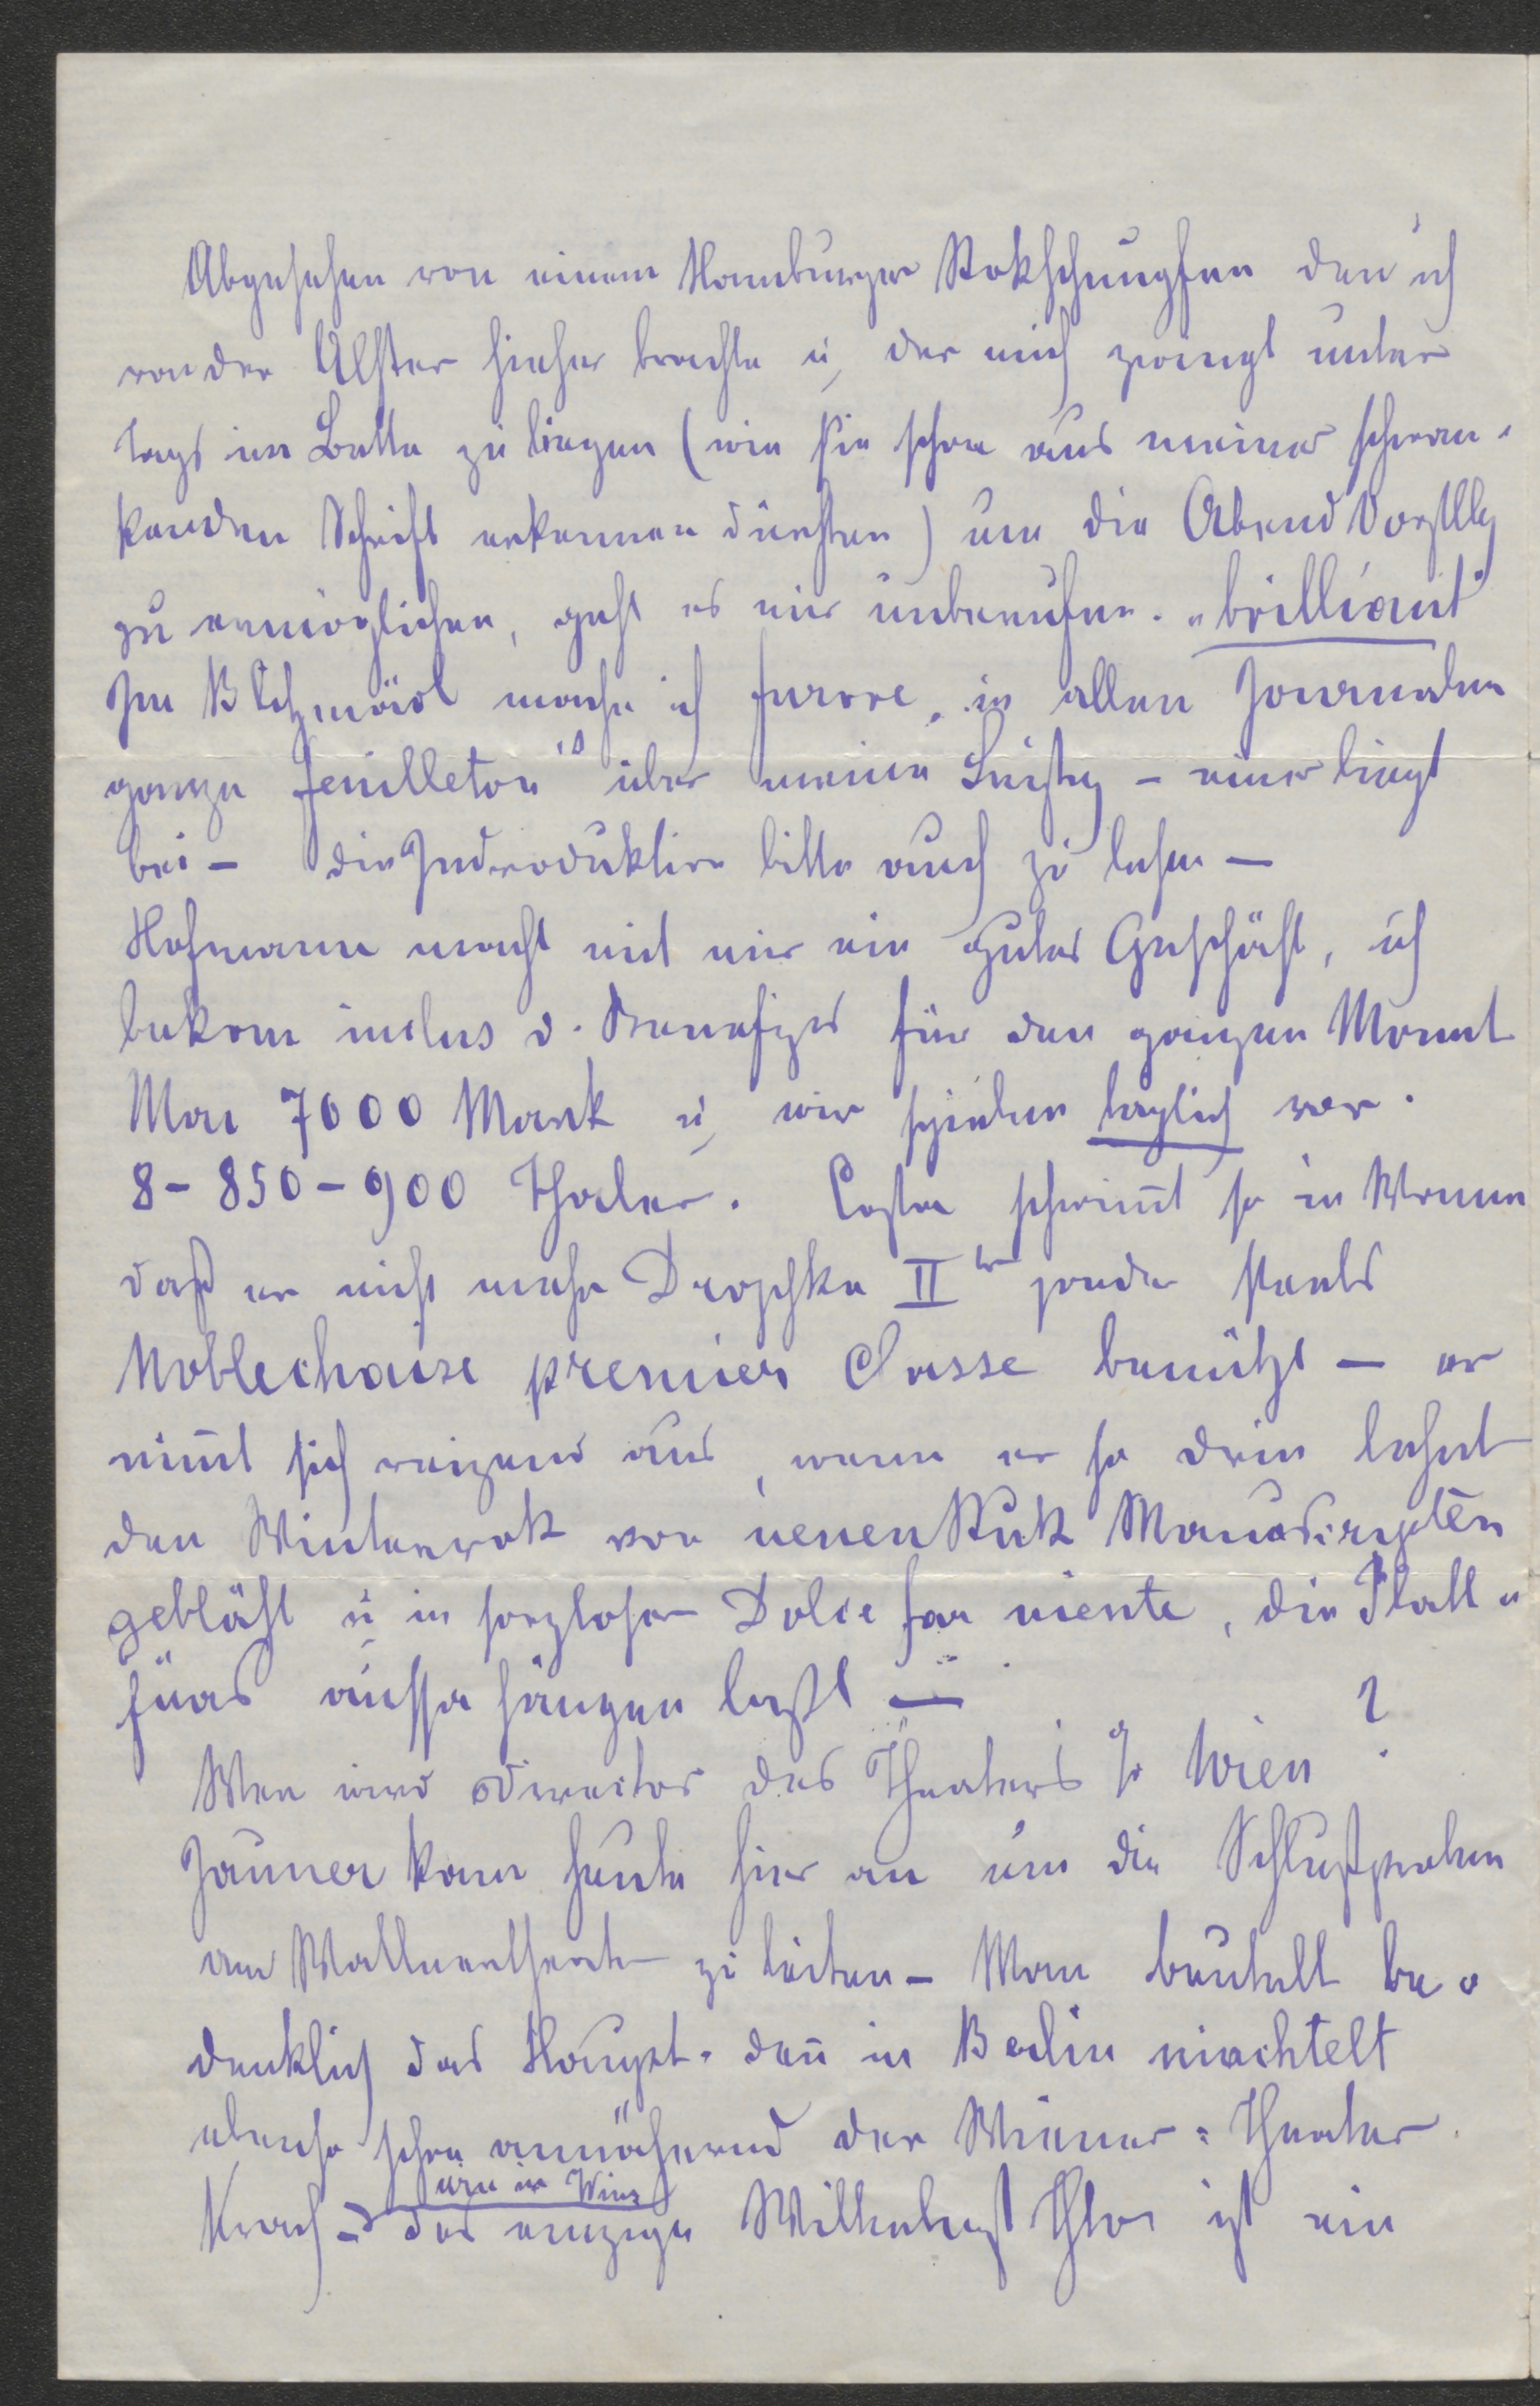 Abgesehen von einem Hamburger Stokschnupfen den ich
von der Alster hieher brachte u. der mich zwingt unter
tags im Bette zu liegen (wie Sie schon aus meiner schwan-
kenden Schrift erkennen dürften) um die Abend Vorstllg
zu ermöglichen, geht es mir unberufen. „brilliant"
Im Blitzmädl mache ich furore, in allen Journalen
ganze feuilleton's über meine Leistg – einer liegt
bei – die Indroduktion bitte auch zu lesen –
Hofmann macht mit mir ein gutes Geschäft, ich
bekom inclus d. Benefizes für den ganzen Monat
Mai 7000 Mark u. wir spielen täglich vor.
8 – 850 – 900 Thaler. Costa schwimt so in Wonne
daß er nicht mehr Droschke IIter sonder stets
Noblechaise premier Classe benützt – er
nimt sich reizend aus, wenn er so drin lehnt
den Winterrok von neuen Stük Manuscripten
gebläht u. in sorgloser Dolce far niente, die Platt-
füas aussa hängen laßt –
Wer wird Director des Theaters ad Wien?
Jauner kam heute hier an um die Schlußproben
am Wallnertheater zu leiten – Man beutelt be-
denklich das Haupt. den in Berlin
ebenso schon annähernd der Wiener = Theater
Krach – das einzige wie in Wien Thtr ist ein